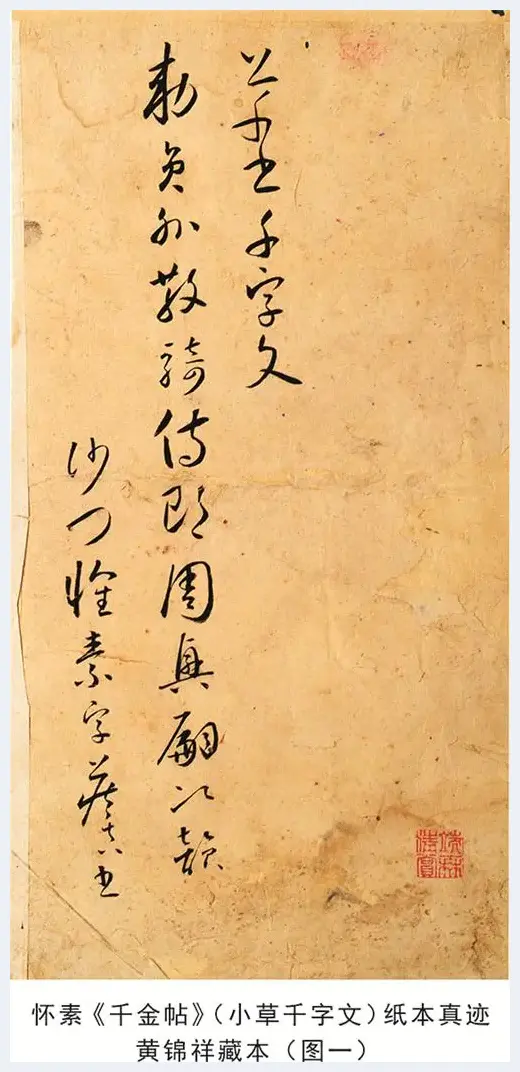 書千字文
勅員外散騎侍郎周興嗣次韻
沙門懷素字藏真書
怀素《千金帖》（小草千字文）纸本真迹
黄锦祥藏本（图一）